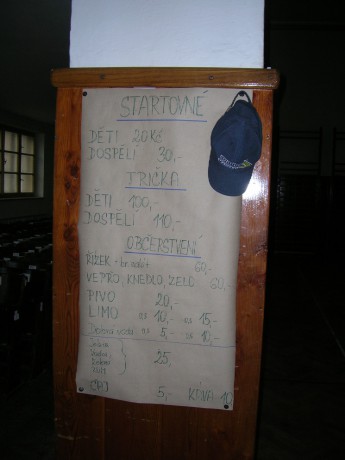 STARTOVNÉ
DĚTI 20 Kč
DOSPĚLÍ 30,-
TRIČKA
DĚTI 100,-
DOSPĚLÍ 110,-
OBČERSTVENÍ
ŘÍZEK + br. salát 60,-
VEPŘO, KNEDLO, ZELO 60,-
PIVO 20,-
LIMO 10,- 15,-
5,- 10,-
25,-
ČAJ 5,- KÁVA 10